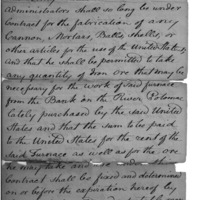 Administrators shall so long be under
Contract for the fabrication of
Cannon, Mortars, Bombs, shells, or
other articles for the use of the United States,
and that he shall be permitted to take
any quantity of Iron ore that may be
necessary for the work of said furnace
from the Bank on the River Potomac
lately purchased by the said United
States and that the sum to be paid
to the United States for the rent of the
said Furnace as well as for the ore
he may take
Contract shall be fixed and determined
on or before the expiration hereof by